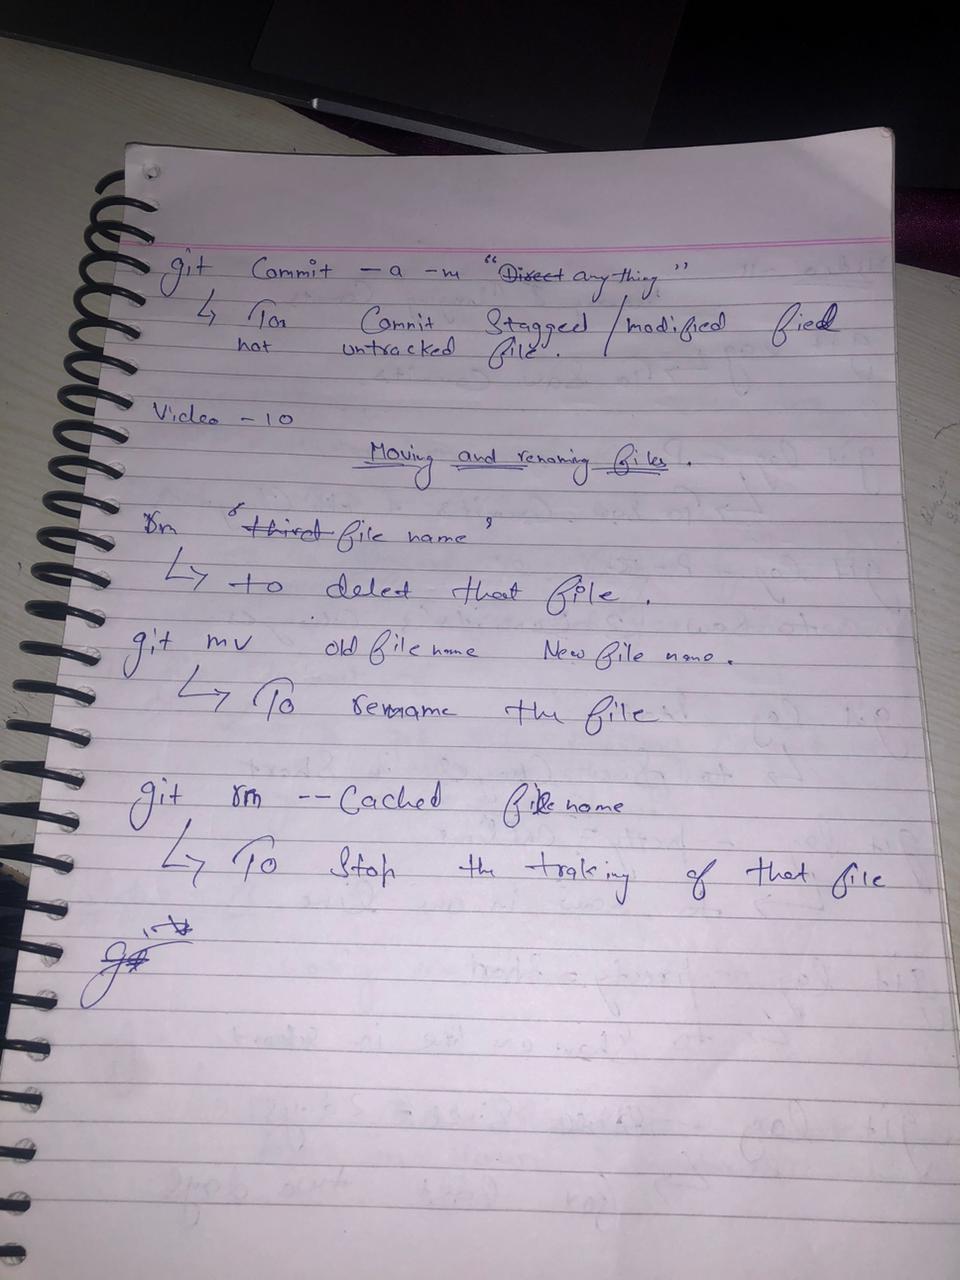 git Commit -a -m "Direct anything"
↳ To Commit Stagged / modified fied
not untracked file.
Video - 10
Moving and renaming files.
rm 'third file name'
↳ to delet that file.
git mv old file name New file name.
↳ To rename the file
git rm --Cached file name
↳ To Stop the traking of that file